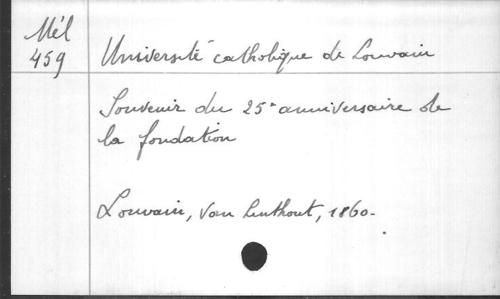 Mél
459
Université catholique de Louvain
Souvenir du 25e anniversaire de
la fondation
Louvain, Van Linthout, 1860.